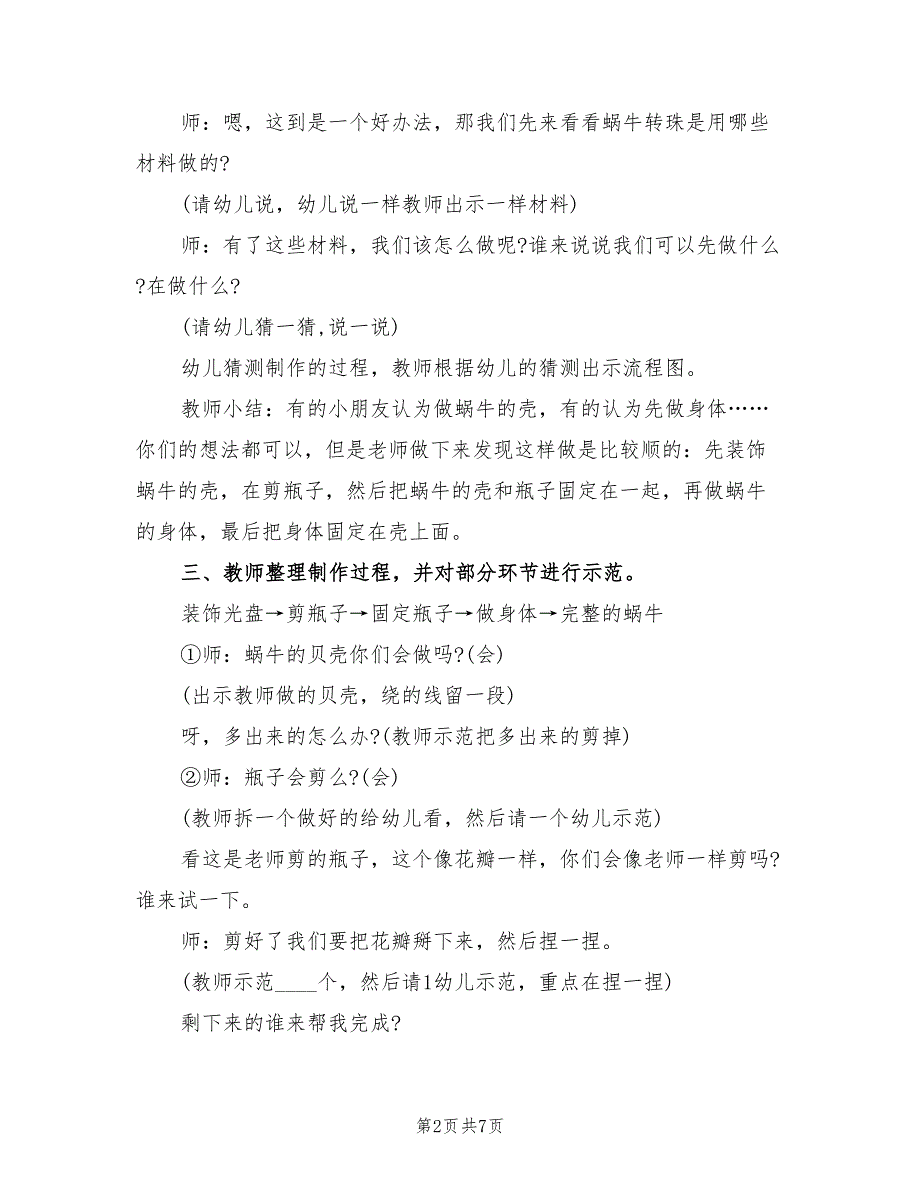 师：嗯，这到是一个好办法，那我们先来看看蜗牛转珠是用哪些
材料做的?
(请幼儿说，幼儿说一样教师出示一样材料)
师：有了这些材料，我们该怎么做呢?谁来说说我们可以先做什么
?在做什么?
(请幼儿猜一猜,说一说)
幼儿猜测制作的过程，教师根据幼儿的猜测出示流程图。
教师小结：有的小朋友认为做蜗牛的壳，有的认为先做身体……
你们的想法都可以，但是老师做下来发现这样做是比较顺的：先装饰
蜗牛的壳，在剪瓶子，然后把蜗牛的壳和瓶子固定在一起，再做蜗牛
的身体，最后把身体固定在壳上面。
三、教师整理制作过程，并对部分环节进行示范。
装饰光盘→剪瓶子→固定瓶子→做身体→完整的蜗牛
①师：蜗牛的贝壳你们会做吗?(会)
(出示教师做的贝壳，绕的线留一段)
呀，多出来的怎么办?(教师示范把多出来的剪掉)
②师：瓶子会剪么?(会)
(教师拆一个做好的给幼儿看，然后请一个幼儿示范)
看这是老师剪的瓶子，这个像花瓣一样，你们会像老师一样剪吗?
谁来试一下。
师：剪好了我们要把花瓣掰下来，然后捏一捏。
(教师示范____个，然后请1幼儿示范，重点在捏一捏)
剩下来的谁来帮我完成?
第2页共7页